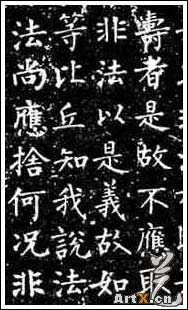 壽者是故不應取
非法以是義故如
等比丘知我說法
法尚應捨何況非
ArtX.cn